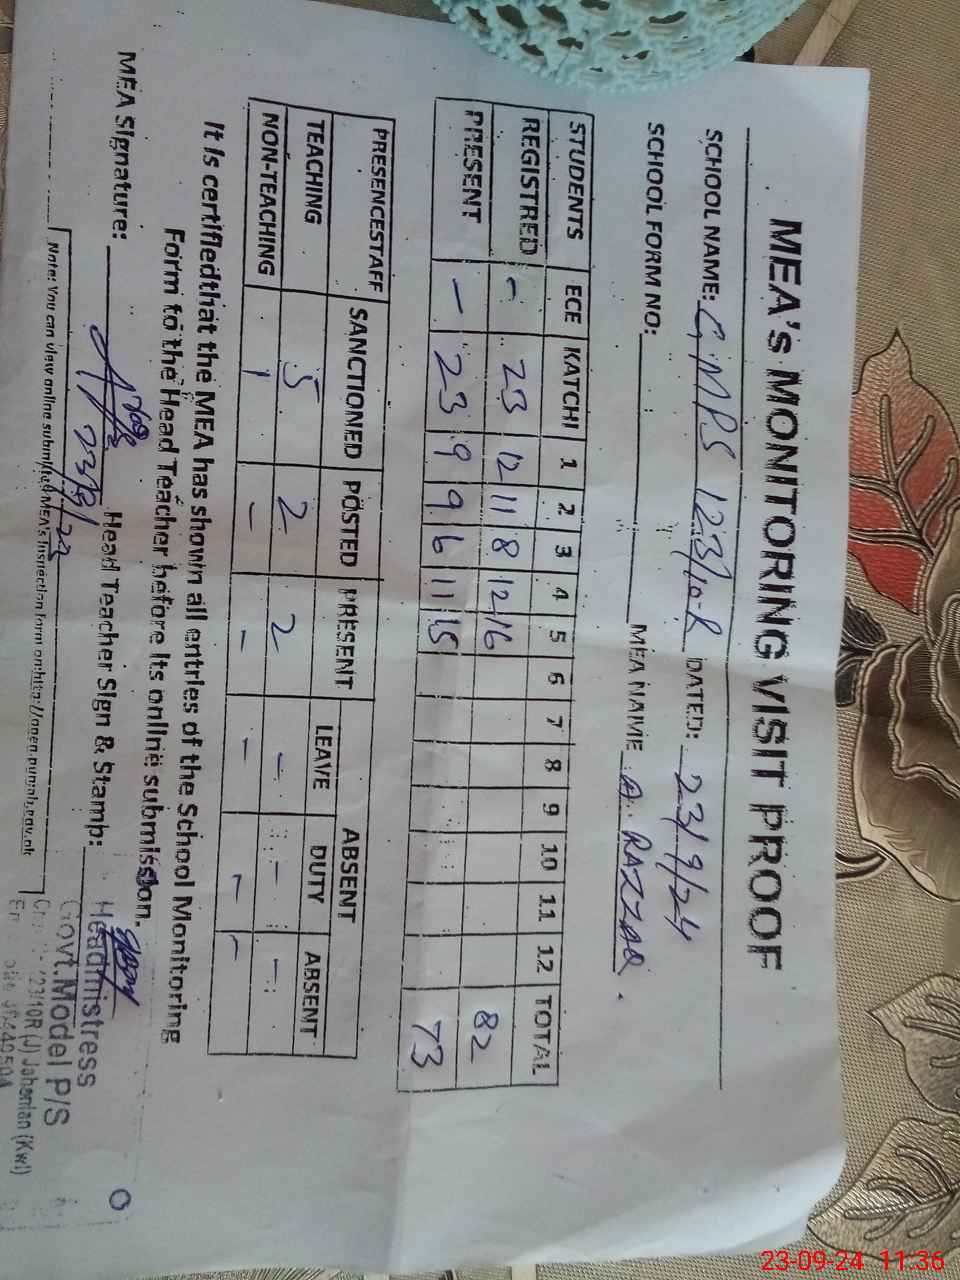 MEA's MONITORING VISIT PROOF
SCHOOL NAME: GMPS 123/10-R DATED: 23/9/24
SCHOOL FORM NO: MEA NAME: A. RAZZAQ.
STUDENTS ECE KATCHI 1 2 3 4 5 6 7 8 9 10 11 12 TOTAL
REGISTRED - 23 12 11 8 12 16 82
PRESENT - 23 9 9 6 11 15 73
PRESENCESTAFF SANCTIONED POSTED PRESENT ABSENT
LEAVE DUTY ABSENT
TEACHING 5 2 2 - - -
NON-TEACHING 1 - - - - -
It is certifiedthat the MEA has shown all entries of the School Monitoring
Form to the Head Teacher before its online submission.
MEA Signature: Head Teacher Sign & Stamp:
Note: You can view online submitted MEA's Inspection form on http://open.punjab.gov.pk
Headmistress
Govt.Model P/S
123/10R (J) Jahanian (Kwl)
23-09-24 11:36